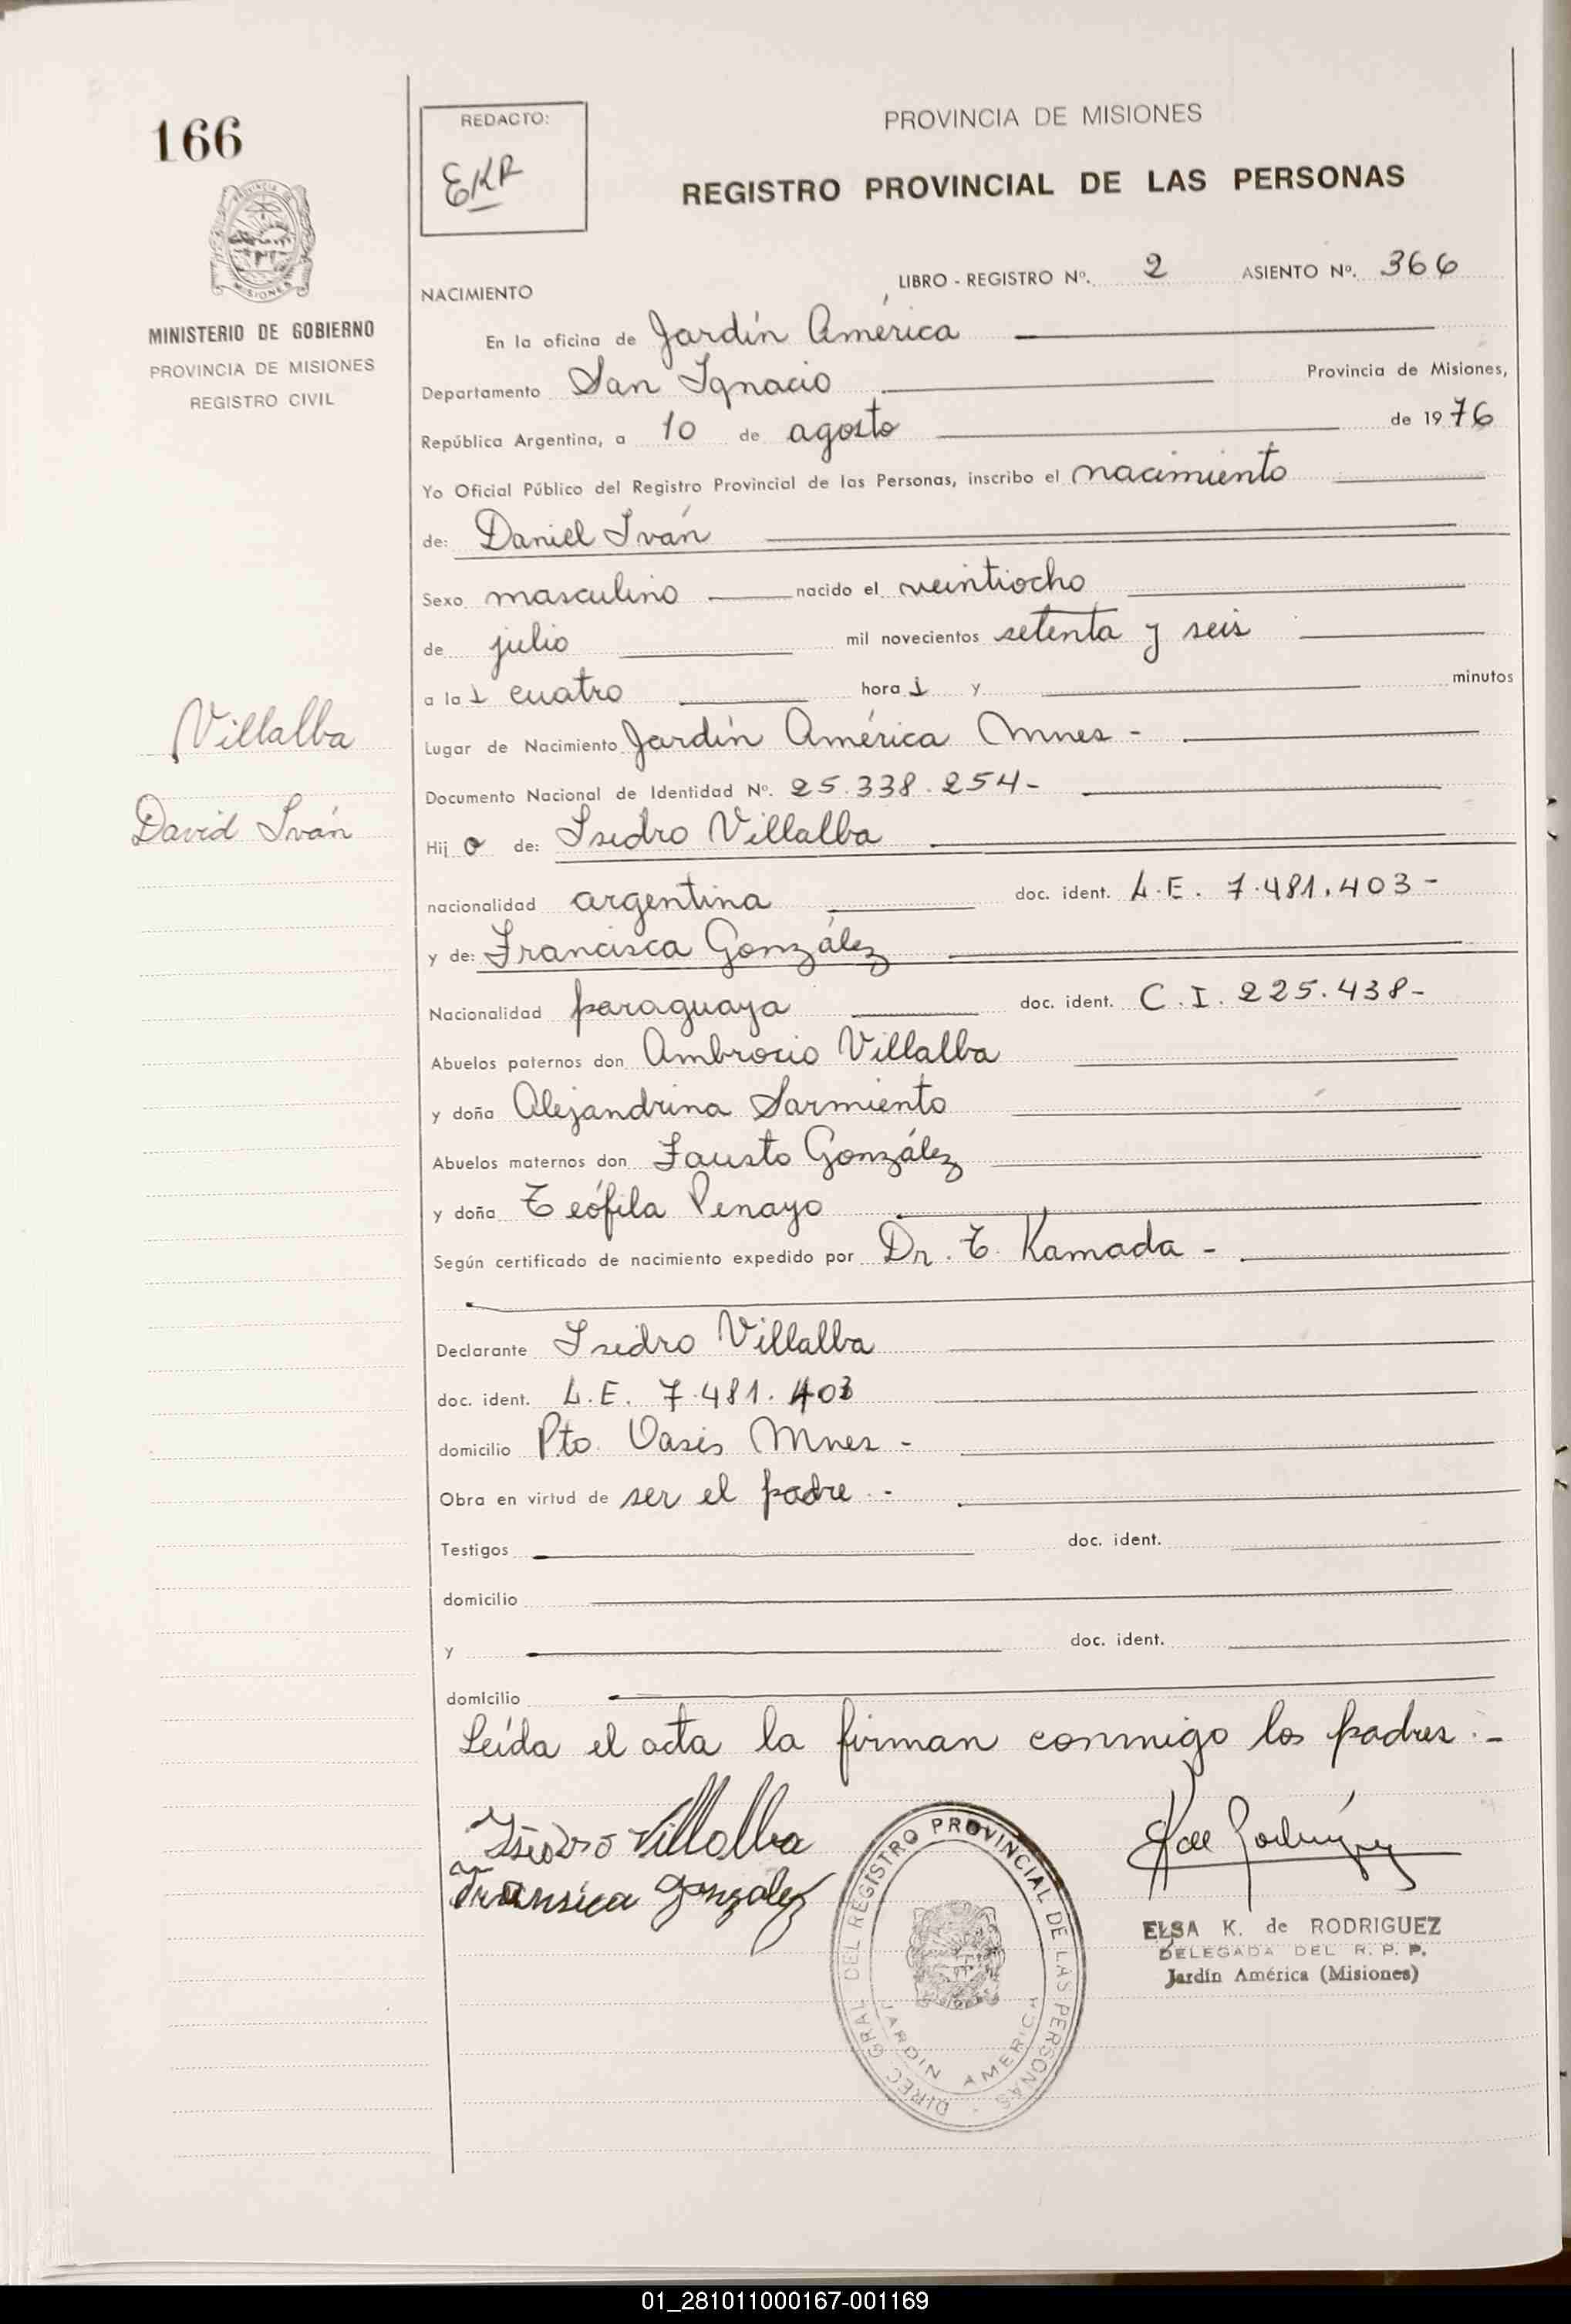 166
MINISTERIO DE GOBIERNO
PROVINCIA DE MISIONES
REGISTRO CIVIL
Villalba
David Iván
REDACTO:
EKR
PROVINCIA DE MISIONES
REGISTRO PROVINCIAL DE LAS PERSONAS
NACIMIENTO LIBRO - REGISTRO Nº. 2 ASIENTO Nº. 366
En la oficina de Jardín América
Departamento San Ignacio Provincia de Misiones,
República Argentina, a 10 de agosto de 1976
Yo Oficial Público del Registro Provincial de las Personas, inscribo el nacimiento
de: Daniel Iván
Sexo masculino nacido el veintiocho
de julio mil novecientos setenta y seis
a las cuatro horas y minutos
Lugar de Nacimiento Jardín América Mnes -
Documento Nacional de Identidad Nº. 25.338.254-
Hijo de: Isidro Villalba
nacionalidad argentina doc. ident. L.E. 7.481.403-
y de: Francisca González
Nacionalidad paraguaya doc. ident. C.I. 225.438-
Abuelos paternos don Ambrocio Villalba
y doña Alejandrina Sarmiento
Abuelos maternos don Fausto González
y doña Teófila Penayo
Según certificado de nacimiento expedido por Dr. T. Kamada -
Declarante Isidro Villalba
doc. ident. L.E. 7.481.403
domicilio Pto. Oasis Mnes -
Obra en virtud de ser el padre.-
Testigos doc. ident.
domicilio
y doc. ident.
domicilio
Leída el acta la firman conmigo los padres.-
Isidro Villalba
Fransica gonzalez
K de Rodríguez
DIREC GRAL DEL REGISTRO PROVINCIAL DE LAS PERSONAS
JARDIN AMERICA
ELSA K. de RODRIGUEZ
DELEGADA DEL R. P. P.
Jardín América (Misiones)
01_281011000167-001169